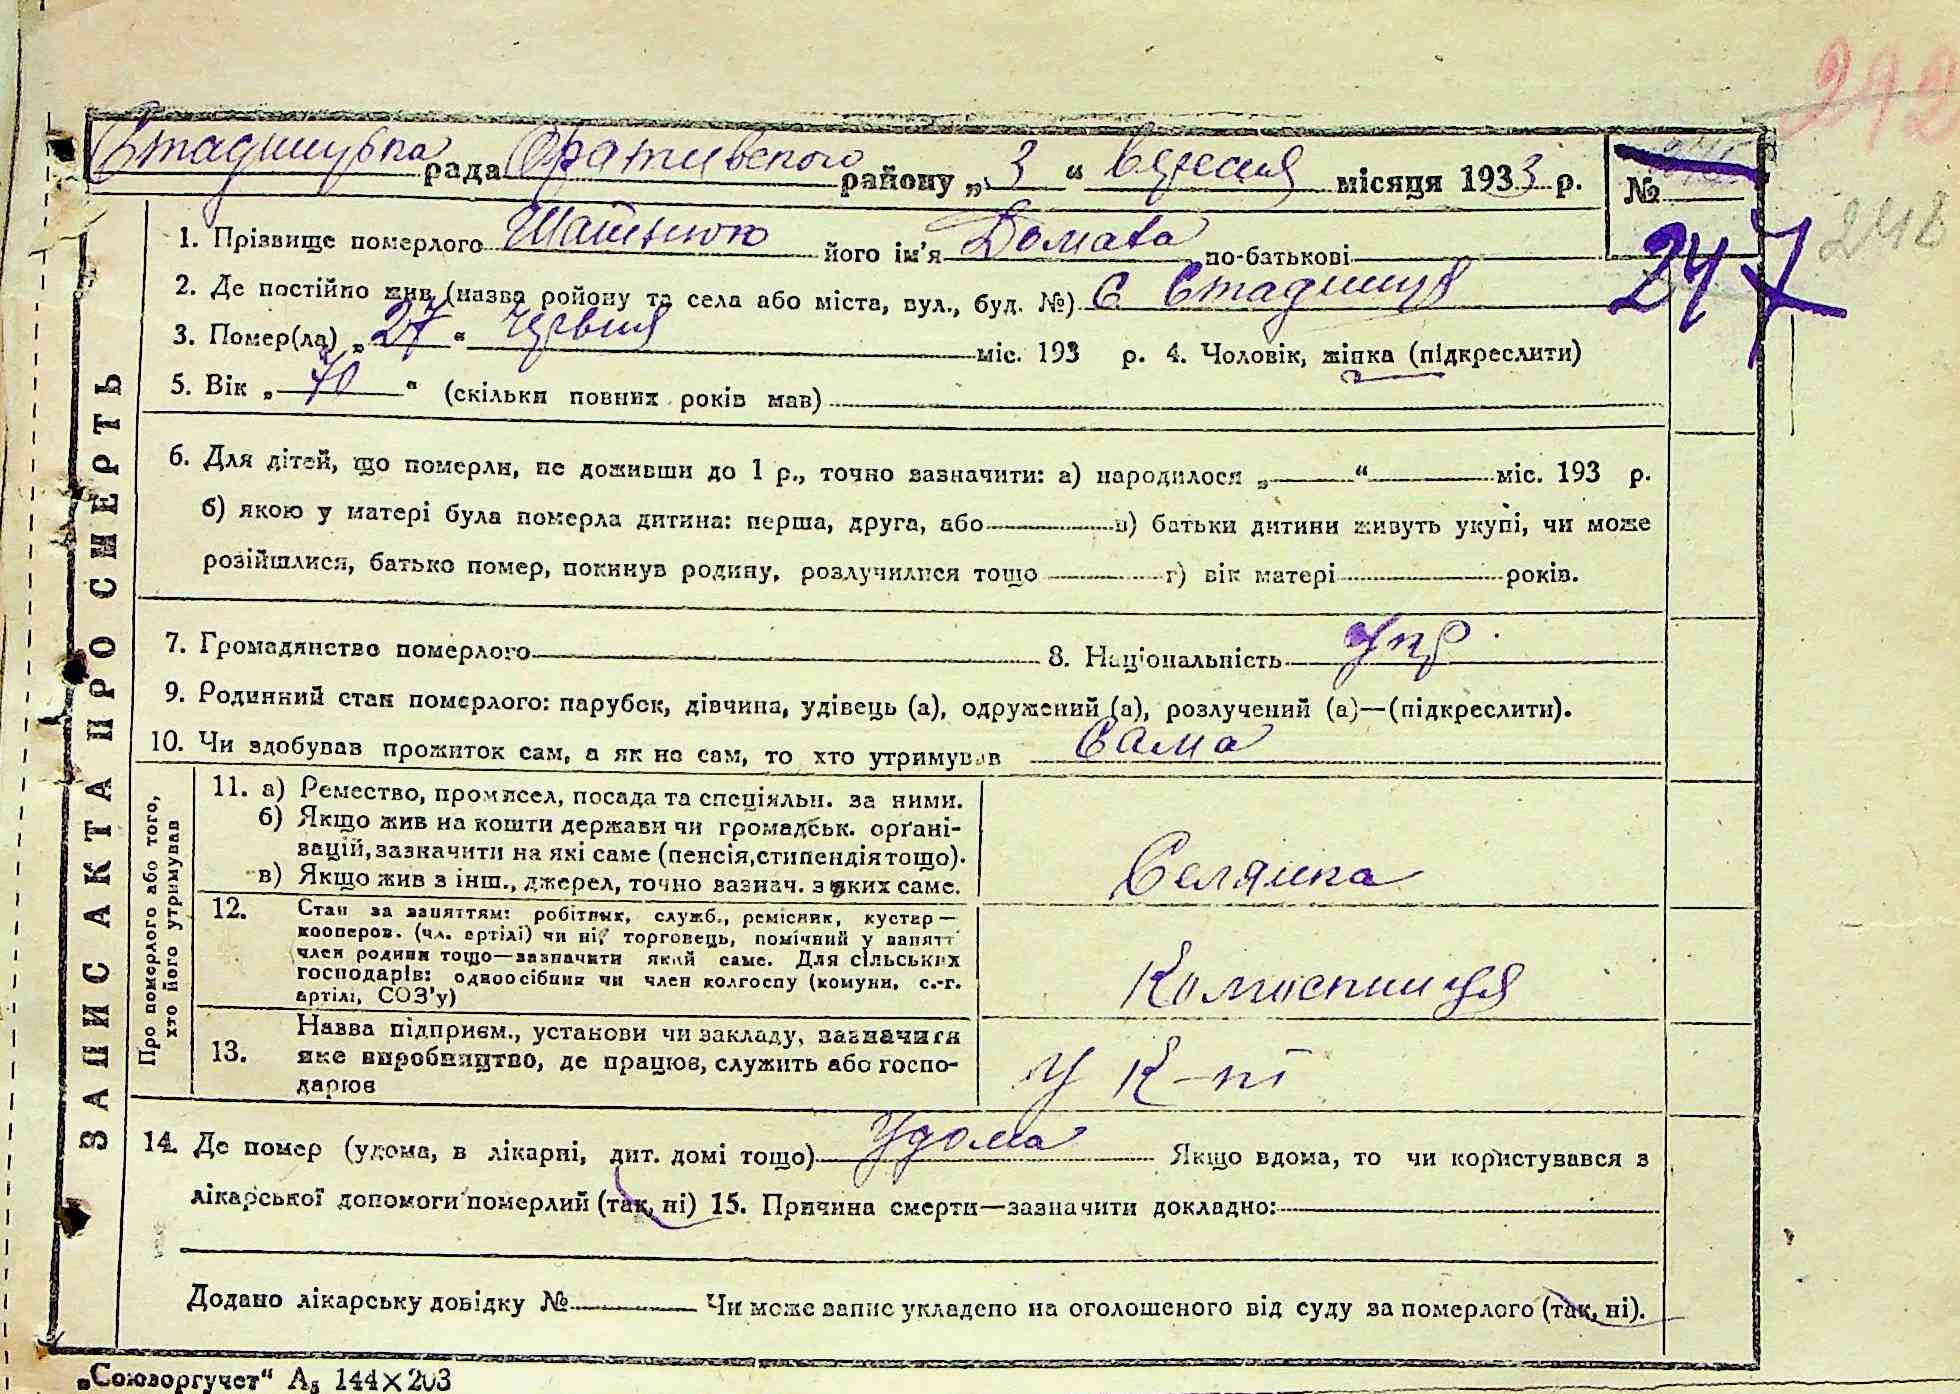 242
Стадницька рада Оратівського району „ 3 “ вересня місяця 1933 р. №
247
248
ЗАПИС АКТА ПРО СМЕРТЬ
1. Прізвище померлого його ім'я Домаха по-батькові
2. Де постійно жив (назва ройону та села або міста, вул., буд. №) С Стадниця
3. Помер(ла) „ 27 “ червня міс. 193 р. 4. Чоловік, жінка (підкреслити)
5. Вік „ 70 “ (скільки повних років мав)
6. Для дітей, що померли, не доживши до 1 р., точно зазначити: а) народилося „ “ міс. 193 р.
б) якою у матері була померла дитина: перша, друга, або в) батьки дитини живуть укупі, чи може
розійшлися, батько помер, покинув родину, розлучилися тощо г) вік матері років.
7. Громадянство померлого 8. Національність укр
9. Родинний стан померлого: парубок, дівчина, удівець (а), одружений (а), розлучений (а)—(підкреслити).
10. Чи здобував прожиток сам, а як не сам, то хто утримував Сама
Про померлого або того, хто його утримував
11. а) Ремество, промисел, посада та спеціяльн. за ними.
б) Якщо жив на кошти держави чи громадськ. орґані-
зацій, зазначити на які саме (пенсія, стипендія тощо).
в) Якщо жив з інш., джерел, точно вазнач. з яких саме.
Селянка
12. Стан за заняттям: робітник, служб., ремісник, кустар—
кооперов. (чл. артілі) чи ні, торговець, помічний у занятт
член родини тощо—зазначити який саме. Для сільських
господарів: одноосібник чи член колгоспу (комуни, с.-г.
артілі, СОЗ'у)
Колгоспниця
13. Назва підприєм., установи чи закладу, зазначити
яке виробництво, де працює, служить або госпо-
дарює
У К-пі
14. Де помер (удома, в лікарні, дит. домі тощо) Удома Якщо вдома, то чи користувався з
лікарської допомоги померлий (так, ні) 15. Причина смерти—зазначити докладно:
Додано лікарську довідку № Чи може запис укладено на оголошеного від суду за померлого (так, ні).
„Союзоргучет“ А₅ 144×203